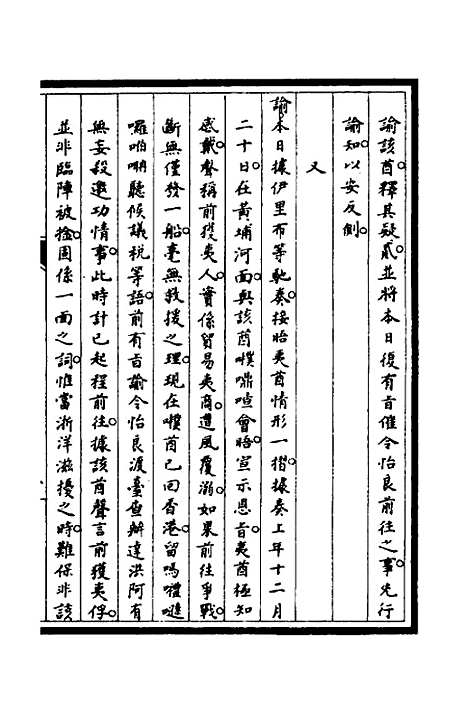 諭該酋釋其疑貳並將本日復有旨催令怡良前往之事先行
諭知以安反側
又
諭本日據伊里布等馳奏接晤夷酋情形一摺據奏上年十二月
二十日在黃埔河面與該酋㗶嘣喳會晤宣示恩旨夷酋極知
感戴聲稱前獲夷人實係貿易夷商遭風覆溺如果前往爭戰
斷無僅發一船毫無救援之理現在㗶酋已回香港留嗎𡃤𠺘
囉咱呐聽候議稅等語前有旨諭令怡良渡臺查辦達洪阿有
無妄殺邀功情事此時計已起程前往據該酋聲言前獲夷俘
並非臨陣被擒固係一面之詞惟當浙洋滋擾之時難保非該